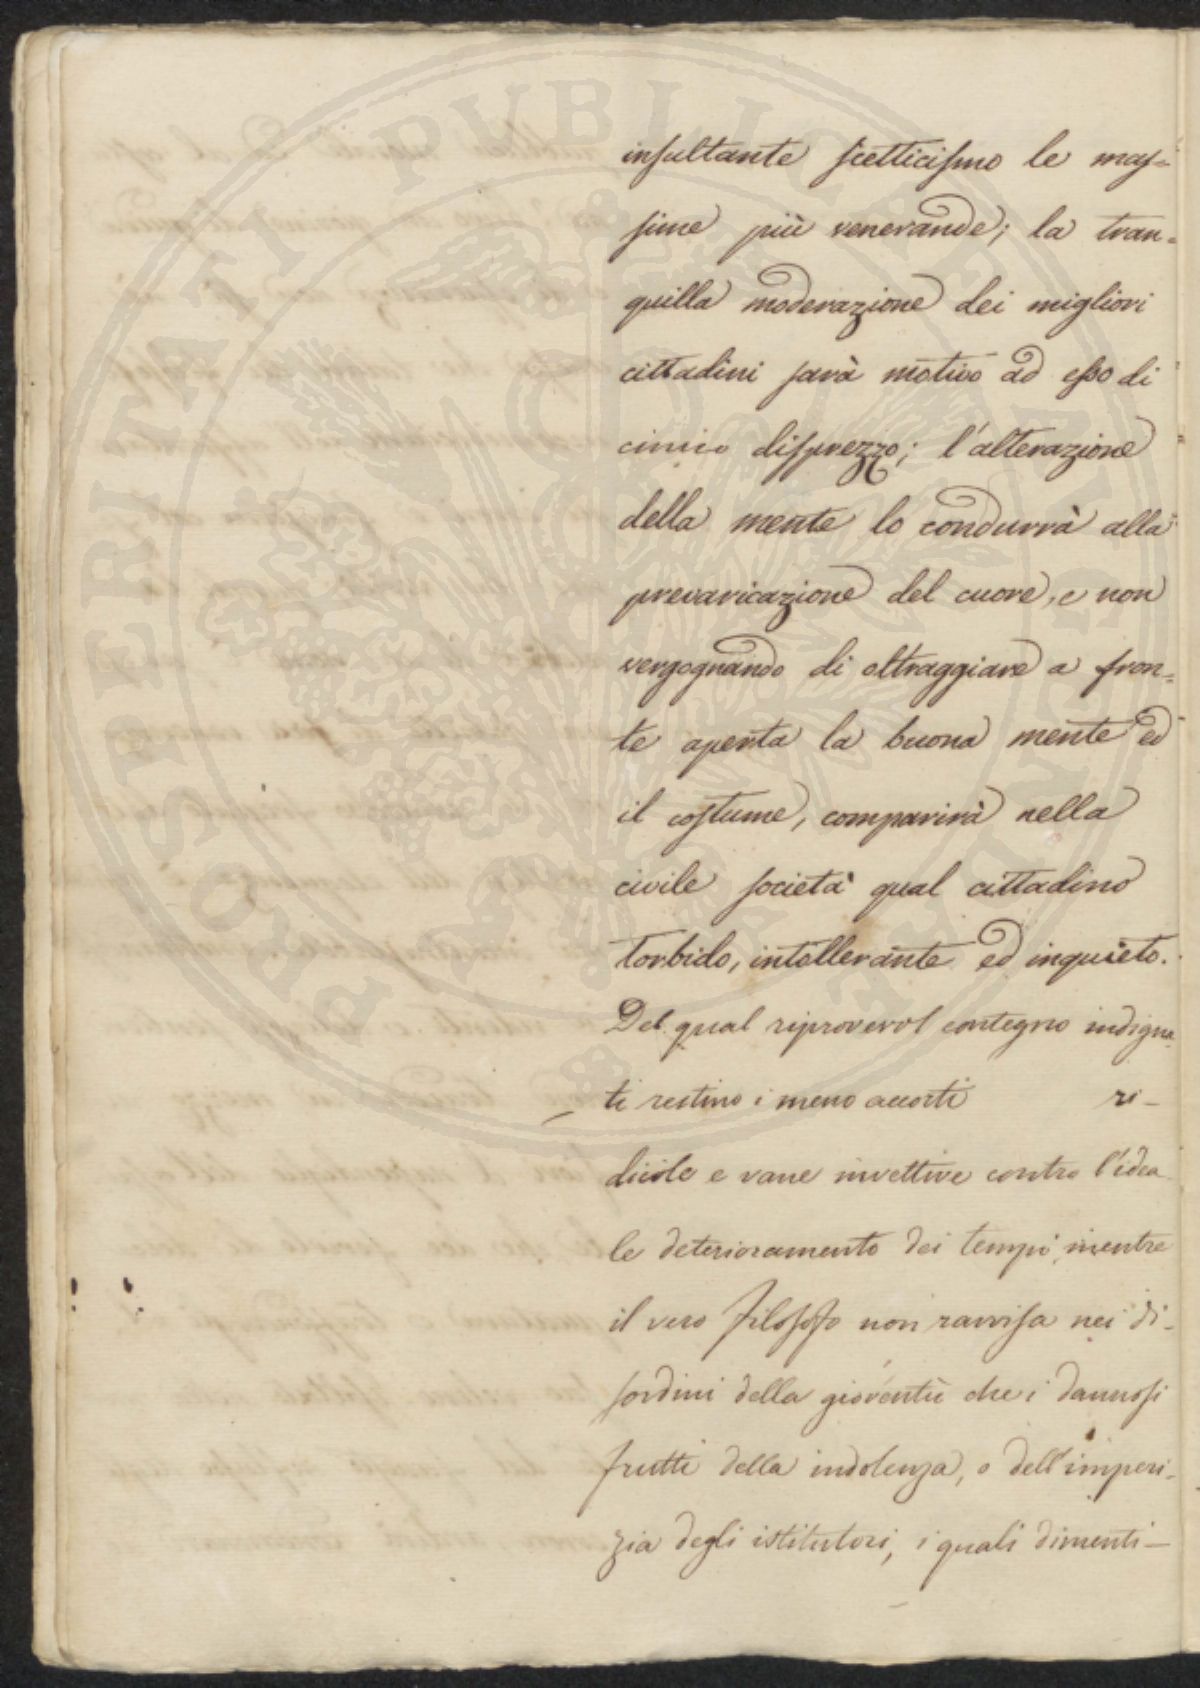 insultante scetticismo le mas=
sime più venerande; la tran=
quilla moderazione dei migliori
cittadini sarà motivo ad esso di
cinico disprezzo; l'alterazione
della mente lo condurrà alla
prevaricazione del cuore, e non
vergognando di oltraggiare a fron=
te aperta la buona mente ed
il costume, comparirà nella
civile società qual cittadino
torbido, intollerante ed inquieto.
Del qual riprovevol contegno indigna
ti restino i meno accorti ri-
dicole e vane invettive contro l'idea
le deterioramento dei tempi, mentre
il vero filosofo non ravvisa nei di-
sordini della gioventù che i dannosi
frutti della indolenza, o dell'imperi-
zia degli istitutori, i quali dimenti-
PROSPERITATI PUBLICAE